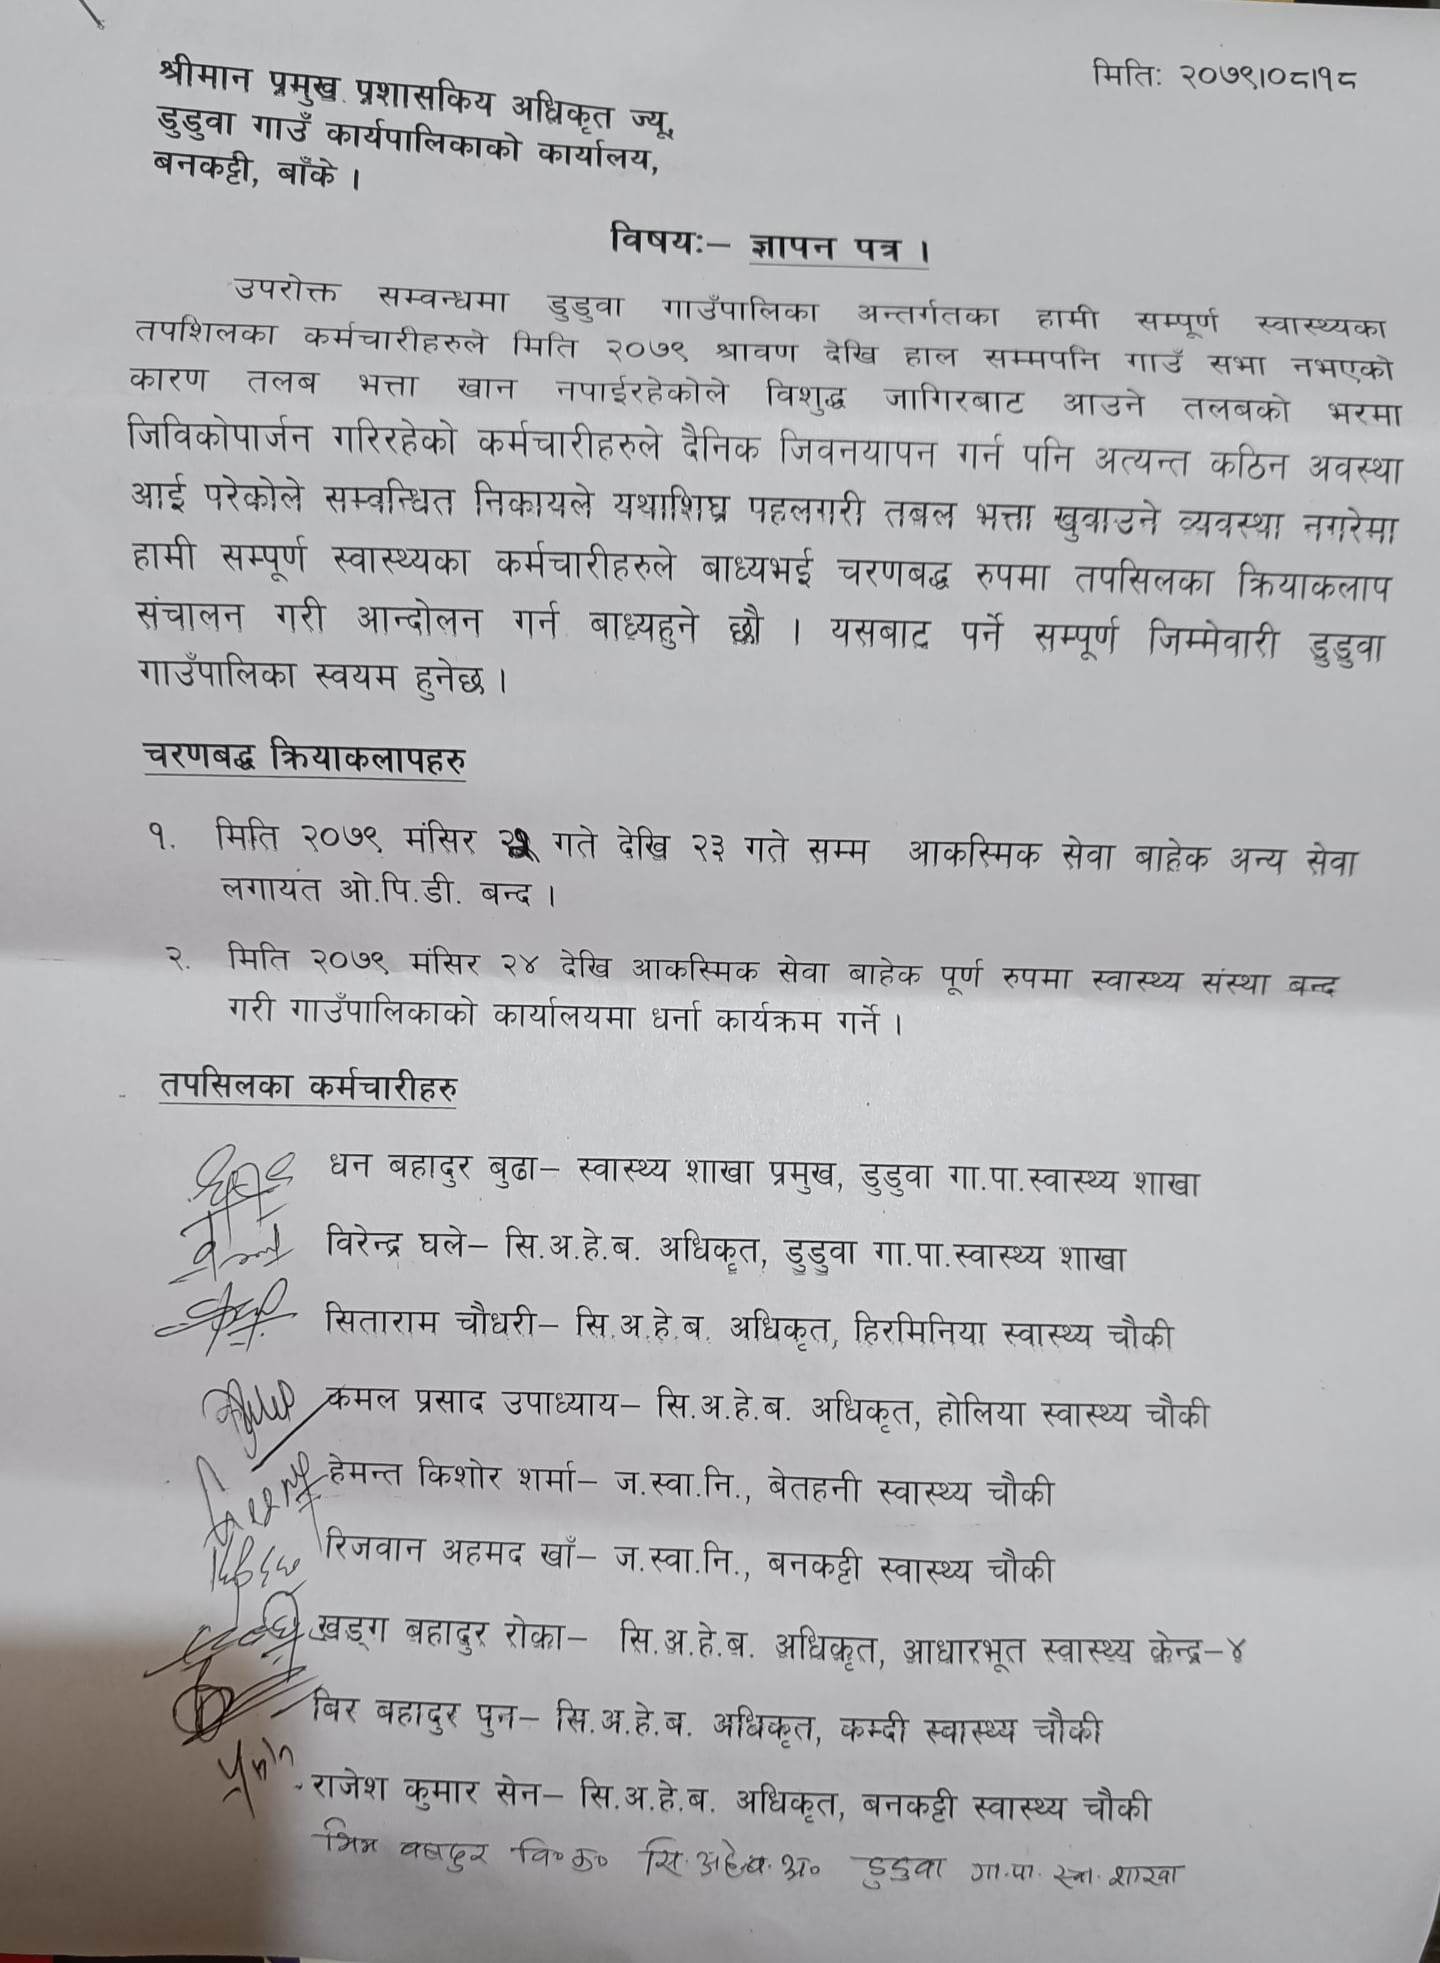 मितिः २०७९।०८।१८
श्रीमान प्रमुख प्रशासकिय अधिकृत ज्यू,
डुडुवा गाउँ कार्यपालिकाको कार्यालय,
बनकट्टी, बाँके ।
विषयः– ज्ञापन पत्र ।
उपरोक्त सम्वन्धमा डुडुवा गाउँपालिका अन्तर्गतका हामी सम्पूर्ण स्वास्थ्यका
तपशिलका कर्मचारीहरुले मिति २०७९ श्रावण देखि हाल सम्मपनि गाउँ सभा नभएको
कारण तलब भत्ता खान नपाईरहेकोले विशुद्ध जागिरबाट आउने तलबको भरमा
जिविकोपार्जन गरिरहेको कर्मचारीहरुले दैनिक जिवनयापन गर्न पनि अत्यन्त कठिन अवस्था
आई परेकोले सम्वन्धित निकायले यथाशिघ्र पहलगरी तबल भत्ता खुवाउने व्यवस्था नगरेमा
हामी सम्पूर्ण स्वास्थ्यका कर्मचारीहरुले बाध्यभई चरणबद्ध रुपमा तपसिलका क्रियाकलाप
संचालन गरी आन्दोलन गर्न बाध्यहुने छौ । यसबाट पर्ने सम्पूर्ण जिम्मेवारी डुडुवा
गाउँपालिका स्वयम हुनेछ ।
चरणबद्ध क्रियाकलापहरु
१. मिति २०७९ मंसिर गते देखि २३ गते सम्म आकस्मिक सेवा बाहेक अन्य सेवा
लगायत ओ.पि.डी. बन्द ।
२. मिति २०७९ मंसिर २४ देखि आकस्मिक सेवा बाहेक पूर्ण रुपमा स्वास्थ्य संस्था बन्द
गरी गाउँपालिकाको कार्यालयमा धर्ना कार्यक्रम गर्ने ।
तपसिलका कर्मचारीहरु
धन बहादुर बुढा– स्वास्थ्य शाखा प्रमुख, डुडुवा गा.पा.स्वास्थ्य शाखा
विरेन्द्र घले– सि.अ.हे.ब. अधिकृत, डुडुवा गा.पा.स्वास्थ्य शाखा
सिताराम चौधरी– सि.अ.हे.ब. अधिकृत, हिरमिनिया स्वास्थ्य चौकी
कमल प्रसाद उपाध्याय– सि.अ.हे.ब. अधिकृत, होलिया स्वास्थ्य चौकी
हेमन्त किशोर शर्मा– ज.स्वा.नि., बेतहनी स्वास्थ्य चौकी
रिजवान अहमद खाँ– ज.स्वा.नि., बनकट्टी स्वास्थ्य चौकी
खड्ग बहादुर रोका– सि.अ.हे.ब. अधिकृत, आधारभूत स्वास्थ्य केन्द्र–४
बिर बहादुर पुन– सि.अ.हे.ब. अधिकृत, कम्दी स्वास्थ्य चौकी
राजेश कुमार सेन– सि.अ.हे.ब. अधिकृत, बनकट्टी स्वास्थ्य चौकी
भिम बहादुर वि॰क॰ सि.अ.हे.ब.अ॰ डुडुवा गा.पा. स्वा. शाखा